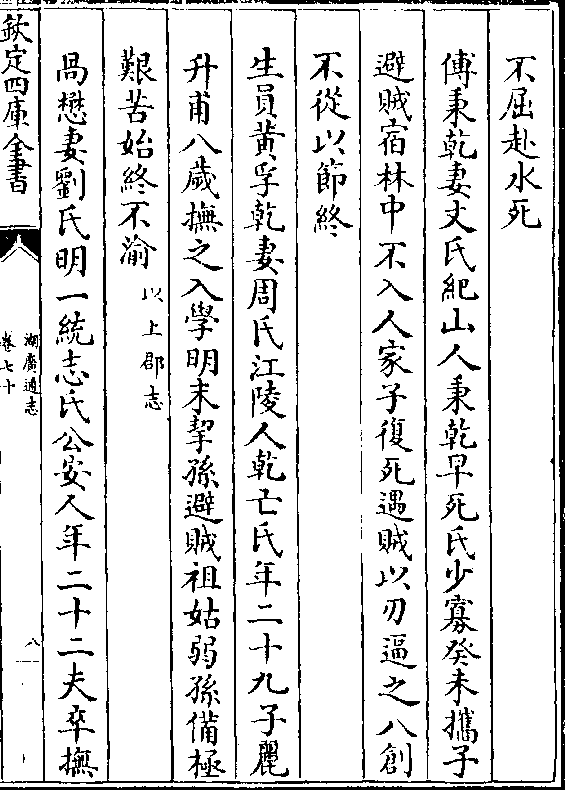 不屈赴水死
傅秉乾妻丈氏紀山人秉乾早死氏少寡癸未攜子
避賊宿林中不入人家子復死遇賊以刃逼之八創
不從以節終
生員黄孚乾妻周氏江陵人乾亡氏年二十九子麗
升甫八歲撫之入學明末挈孫避賊祖姑弱孫備極
艱苦始終不渝以上郡志
咼懋妻劉氏明一統志氏公安人年二十二夫卒撫
欽定四庫全書
湖廣通志
卷七十
八